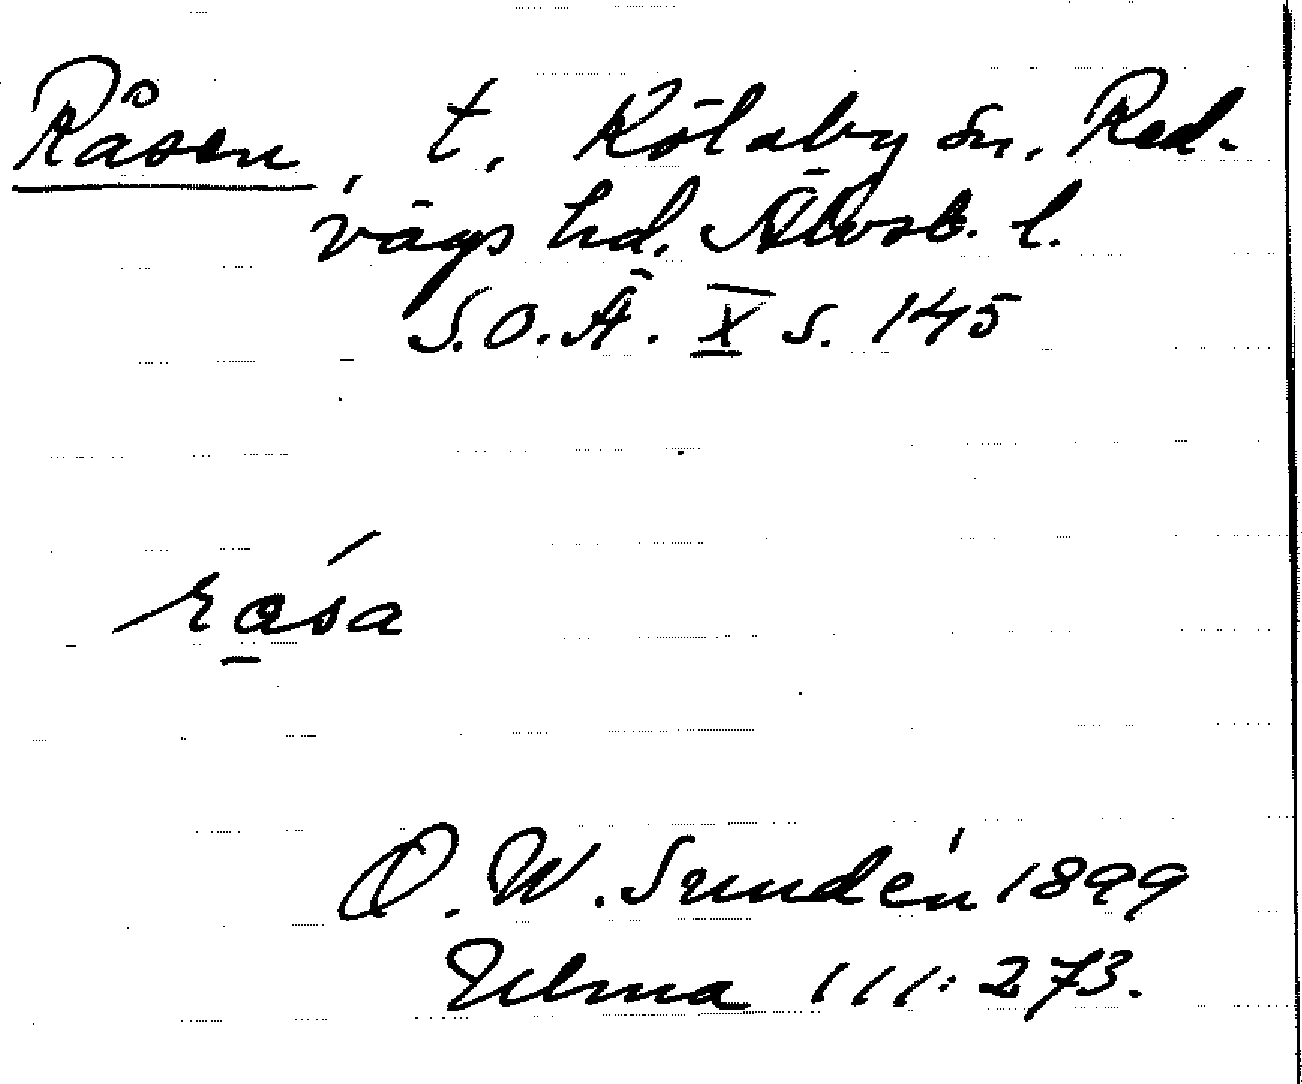 Råsen, t. Kölaby sn, Red-
vägs hd. Älvsb. l.
S.O.Ä. X s. 145
råsa
D. W. Sundén 1899
Ulma 111:273.